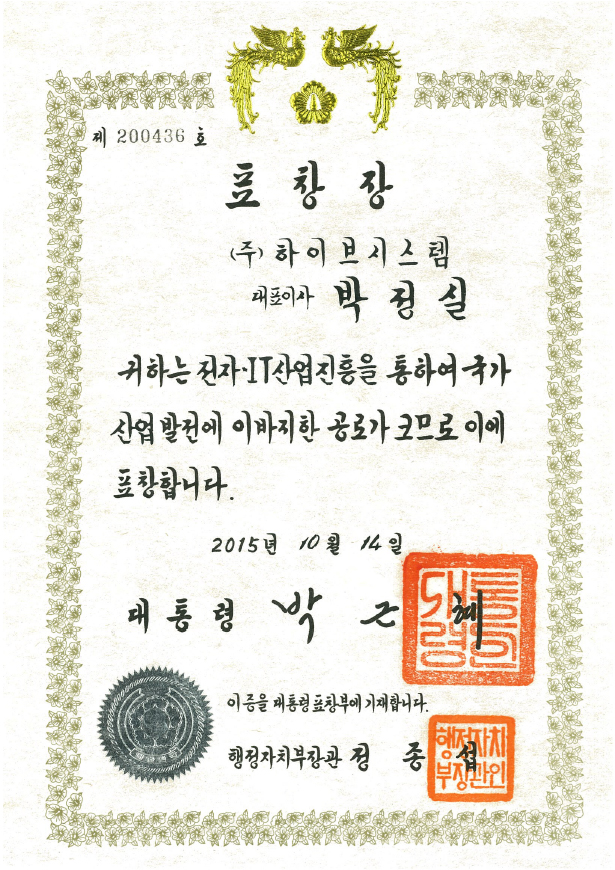 제 200436 호
표 창 장
(주) 하이브시스템
대표이사 박 정 실
귀하는 전자·IT산업진흥을 통하여 국가
산업 발전에 이바지한 공로가 크므로 이에
표창합니다.
2015년 10월 14일
대 통 령 박 근 혜
대통령의인
이 증을 대통령표창부에 기재합니다.
행정자치부장관 정 종 섭
행정자치
부장관인